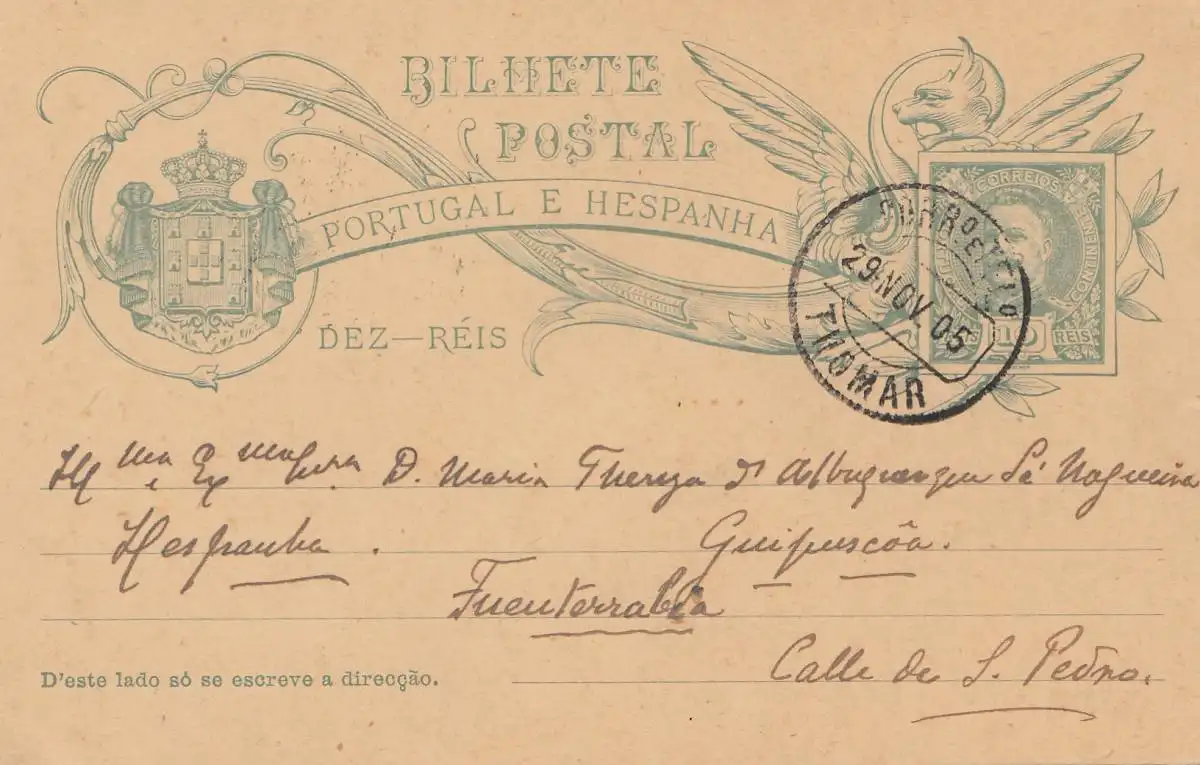 BILHETE
POSTAL
PORTUGAL E HESPANHA
DEZ—RÉIS
CORREIOS
REIS
29 NOV. 05
THOMAR
Illma e Exma Snra D. Maria Thereza d'Albuquerque Sá Nogueira
Hespanha. Guipuscôa.
Fuenterrabia
Calle de S. Pedro.
D'este lado só se escreve a direcção.